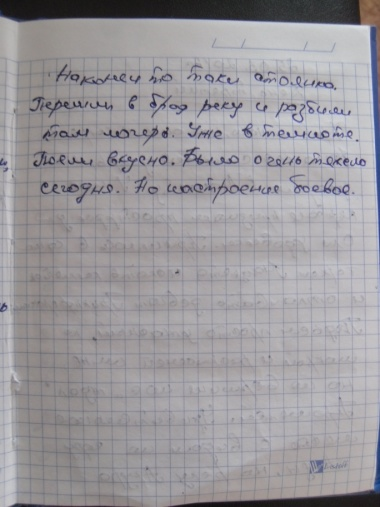 Наконец то таки стоянка.
Перешли в брод реку и разбили
там лагерь. Уже в темноте.
Поели вкусно. Было очень тяжело
сегодня. Но настроение боевое.